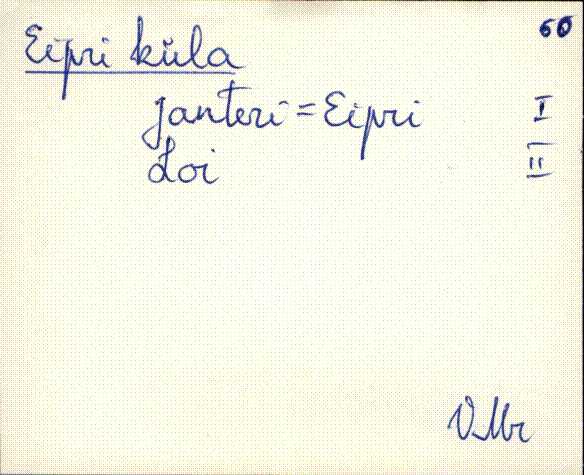 60
Eipri küla
Janteri = Eipri I
Loi II
VMr